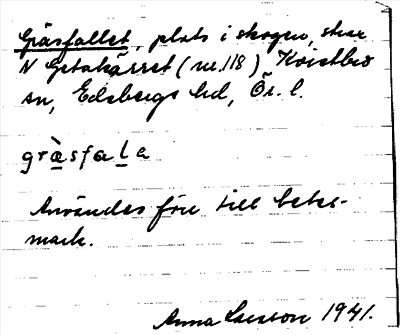 Gräsfallet, plats i skogen, strax
N Getakärret (nr. 118) Kvistbro
sn, Edsbergs hd, Ör. l.
gràsfala
Användes förr till betes-
mark.
Anna Larsson 1941.